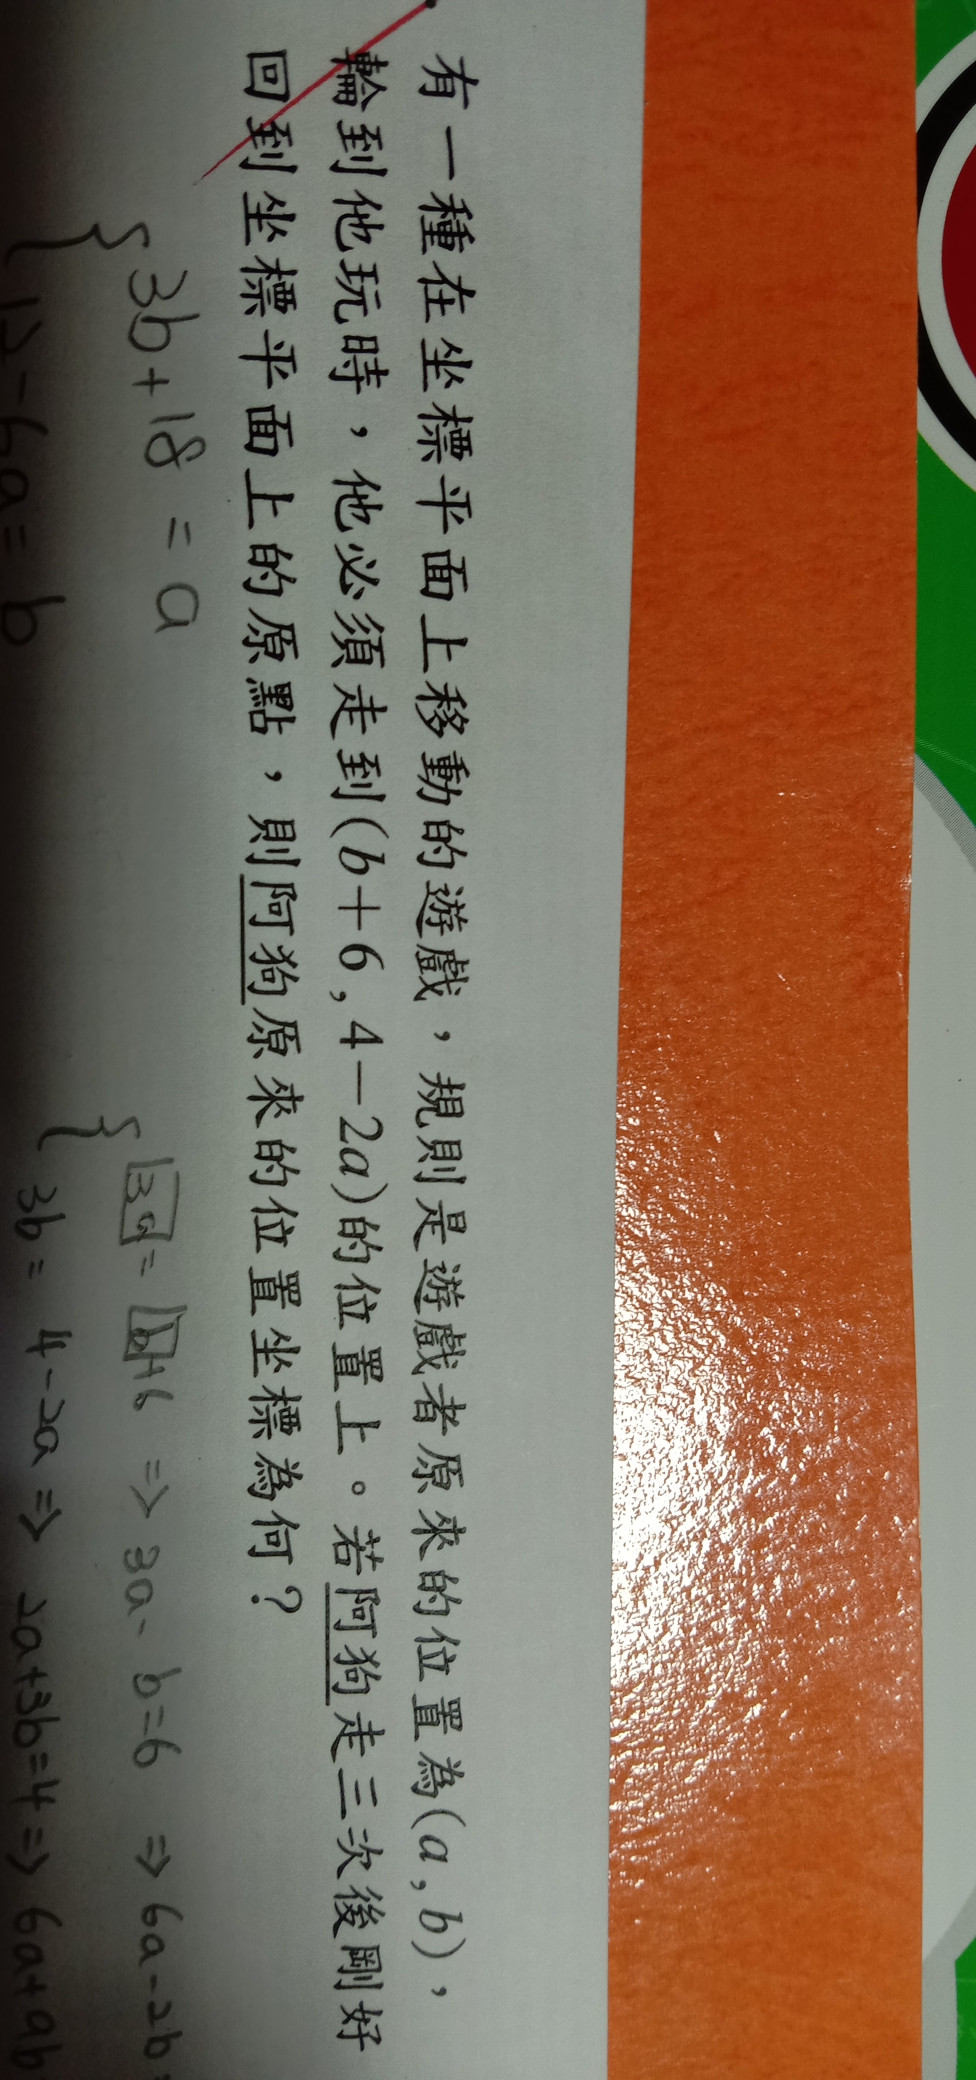 有一種在坐標平面上移動的遊戲，規則是遊戲者原來的位置為(a,b)，
輪到他玩時，他必須走到(b+6,4-2a)的位置上。若阿狗走三次後剛好
回到坐標平面上的原點，則阿狗原來的位置坐標為何？
3b+18=a
12-6a=b
3a=b+6⇒3a-b=6⇒6a-2b=
3b=4-2a⇒2a+3b=4⇒6a+9b